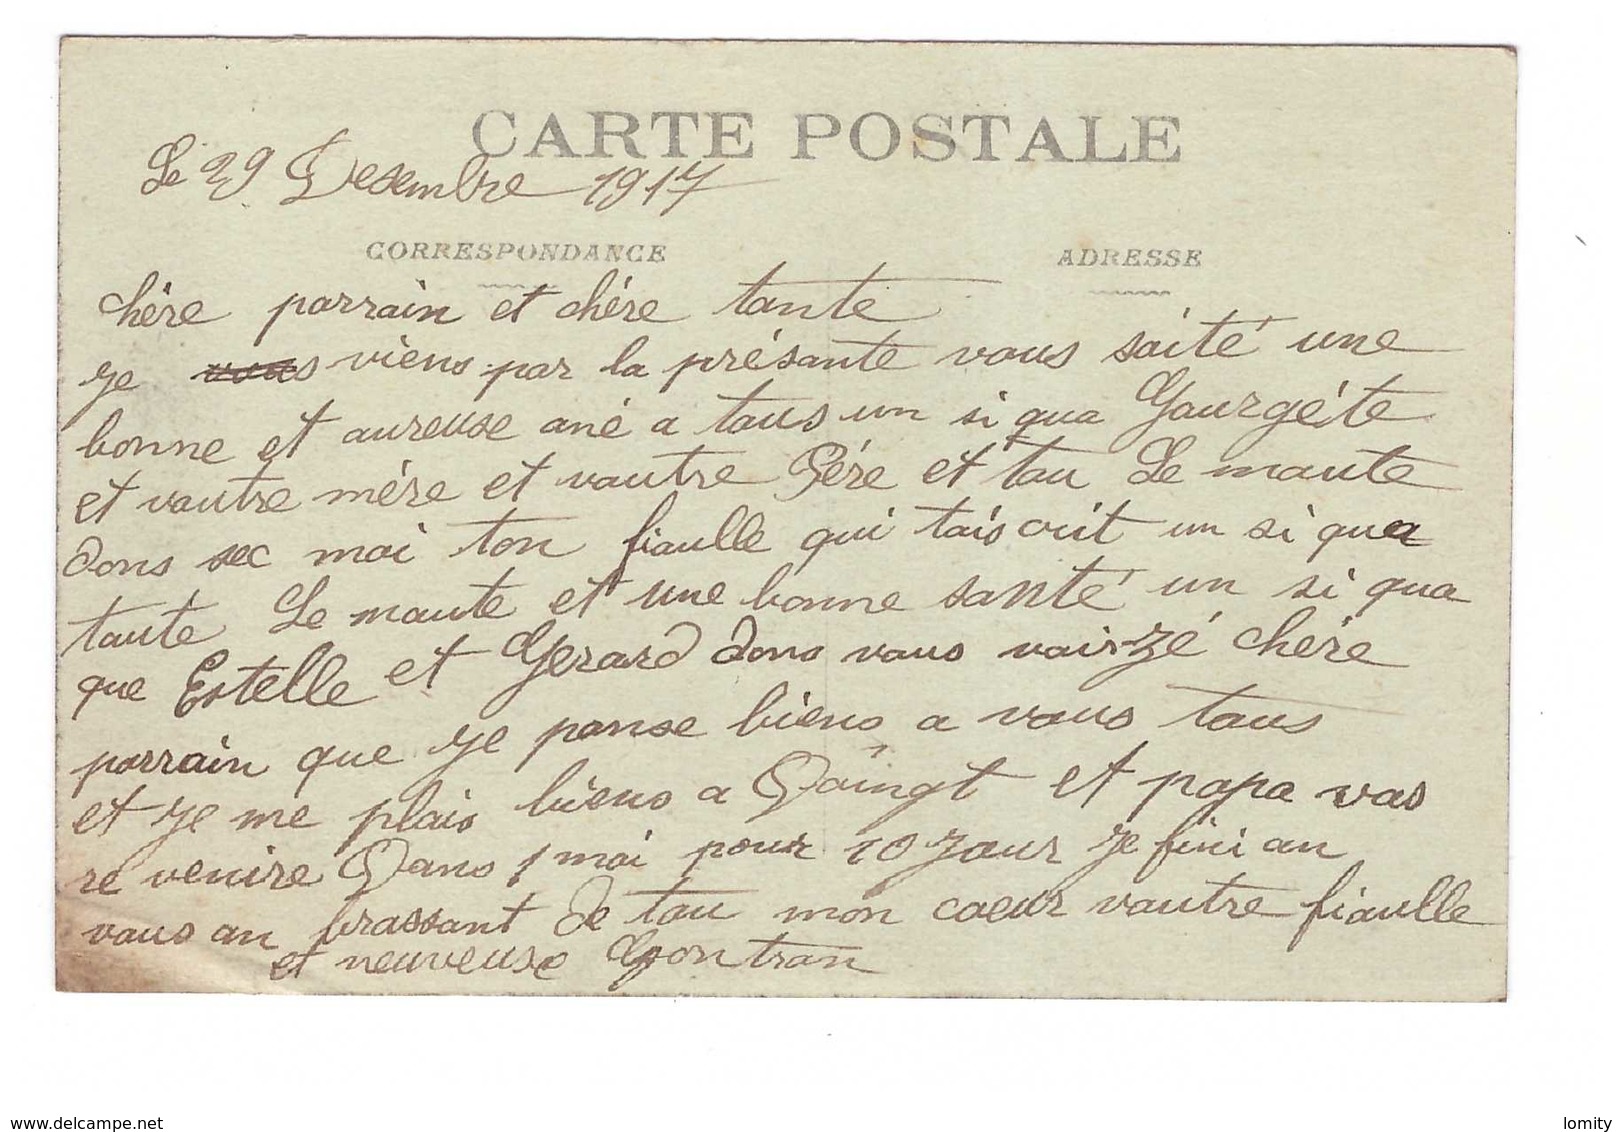 CARTE POSTALE
Le 29 Desembre 1917
CORRESPONDANCE
ADRESSE
chère parrain et chère tante
je vous viens par la présante vous saité une
bonne et aureuse ané a tous un si qua Gaurgéte
et vautre mère et vautre Père et tau Le maute
dons sec moi ton fiaulle qui taiscrit un si qua
taute Le maute et une bonne santé un si qua
que Estelle et Gerard dons vous vairzé chère
parrain que je panse biens a vous tous
et je me plais biens a Doingt et papa vas
re venire Dans 1 moi pour 10 jour je fini an
vous an brassant de tau mon coeur vautre fiaulle
et neuveuse Gontran
delcampe.net
lomity